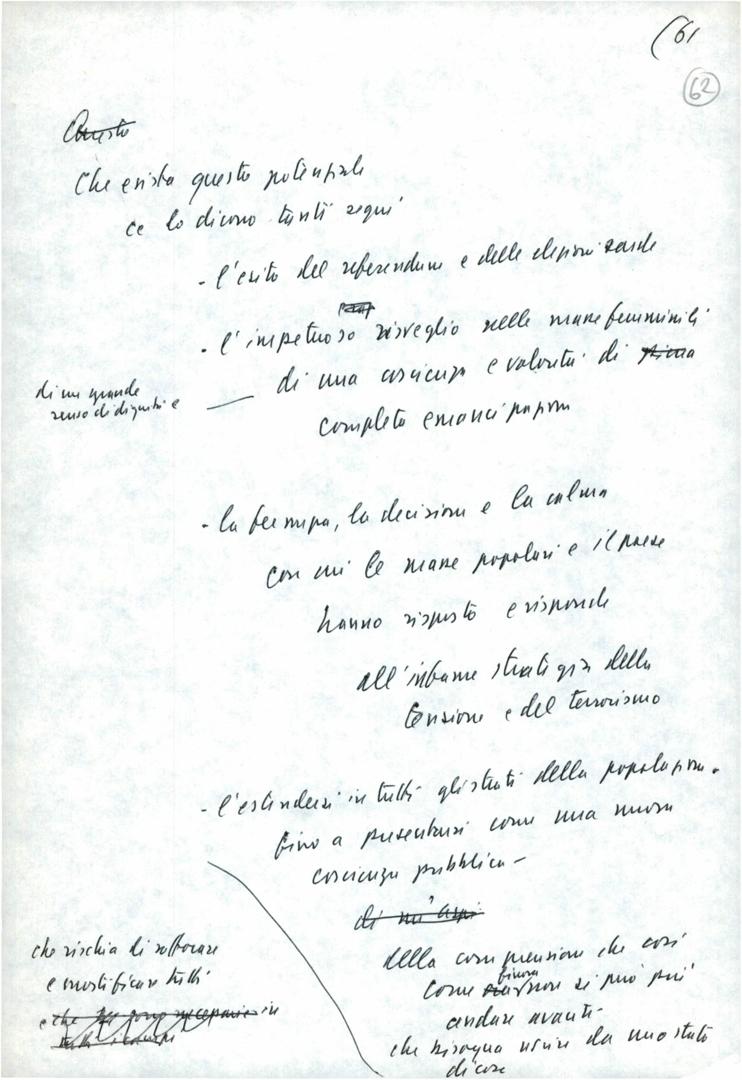 (61
62
Questo
Che esista questo potenziale
ce lo dicono tanti segni
- l'esito del referendum e delle elezioni sarde
- l'impetuoso risveglio nelle masse femminili
di un grande
senso di dignità e
di una coscienza e volontà di piena
completa emancipazione
- la fermezza, la decisione e la calma
con cui le masse popolari e il paese
hanno risposto e risponde
all'infame strategia della
tensione e del terrorismo
- l'estendersi in tutti gli strati della popolazione.
fino a presentarsi come una nuova
coscienza pubblica -
della comprensione che così
finora
come non si può più
andare avanti
che bisogna uscire da uno stato
di cose
che rischia di soffocare
e mortificare tutti
e che in